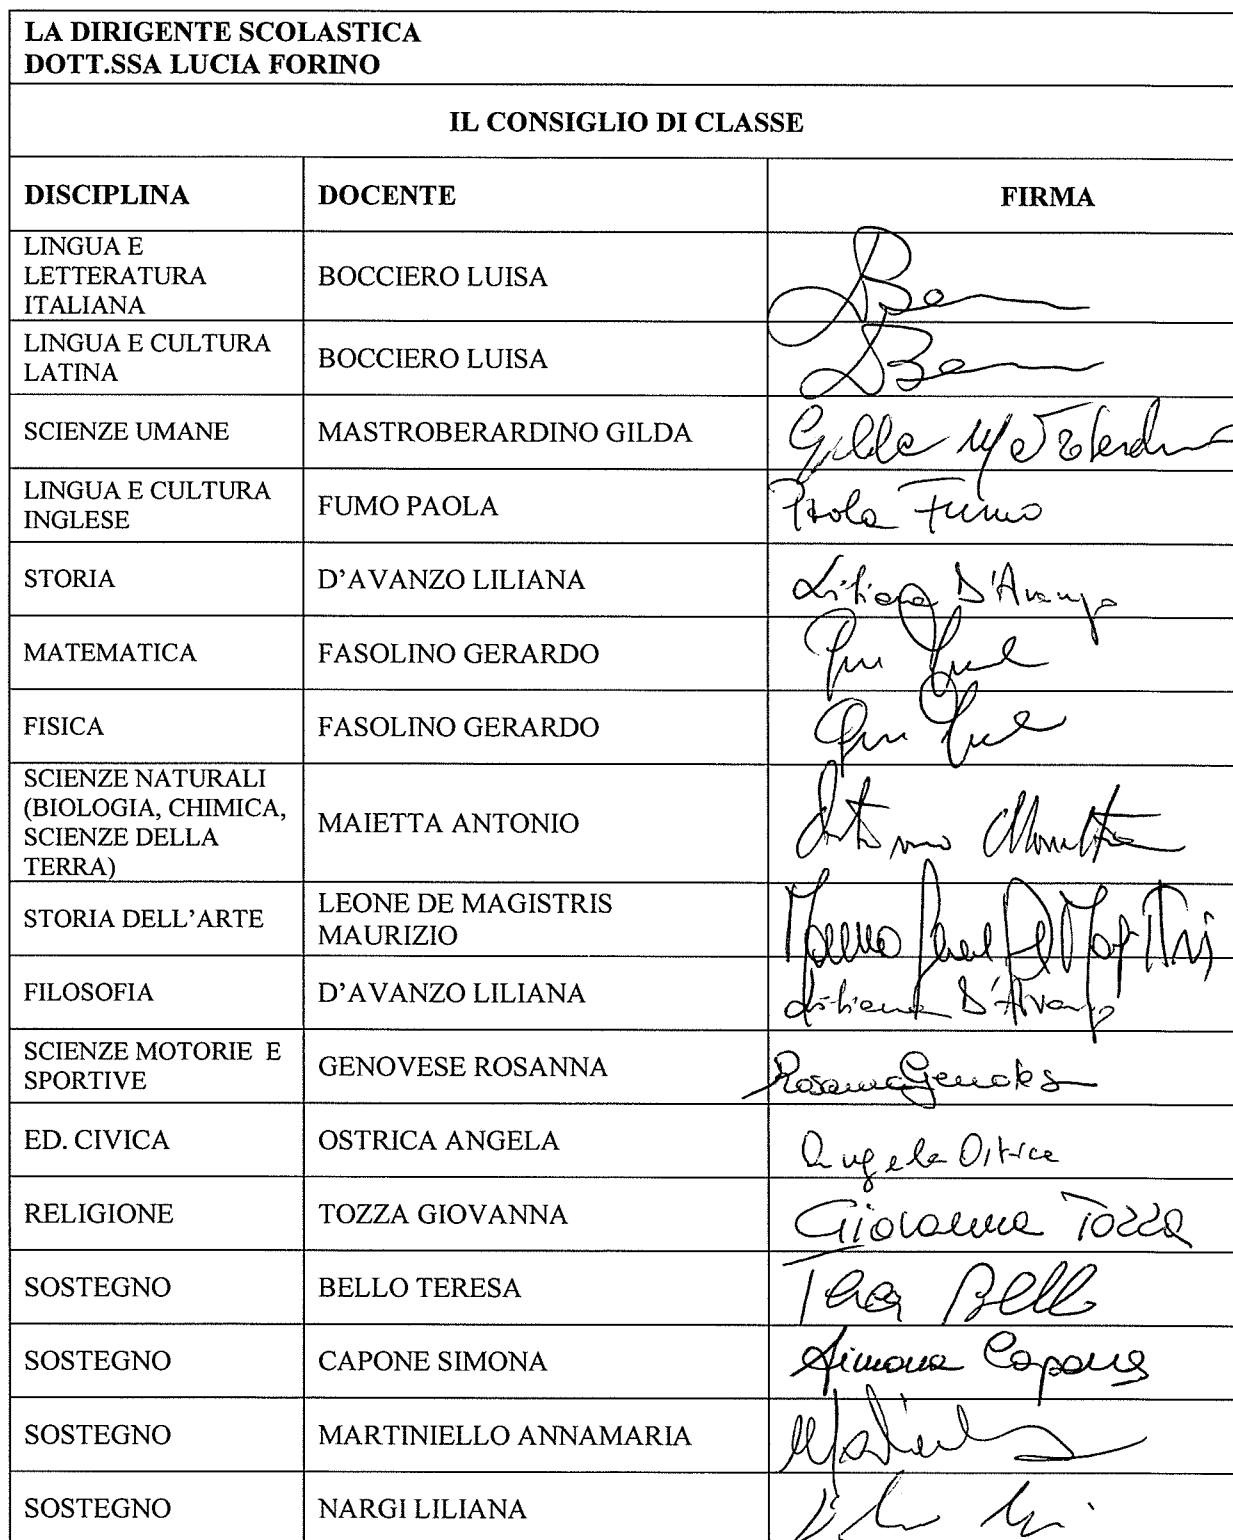 LA DIRIGENTE SCOLASTICA
DOTT.SSA LUCIA FORINO
IL CONSIGLIO DI CLASSE
DISCIPLINA DOCENTE FIRMA
LINGUA E
LETTERATURA
ITALIANA
BOCCIERO LUISA
LINGUA E CULTURA
LATINA
BOCCIERO LUISA
SCIENZE UMANE MASTROBERARDINO GILDA Gilda
LINGUA E CULTURA
INGLESE
FUMO PAOLA Paola Fumo
STORIA D'AVANZO LILIANA Liliana D'Avanzo
MATEMATICA FASOLINO GERARDO
FISICA FASOLINO GERARDO
SCIENZE NATURALI
(BIOLOGIA, CHIMICA,
SCIENZE DELLA
TERRA)
MAIETTA ANTONIO Antonio
STORIA DELL'ARTE
LEONE DE MAGISTRIS
MAURIZIO
FILOSOFIA D'AVANZO LILIANA Liliana D'Avanzo
SCIENZE MOTORIE E
SPORTIVE
GENOVESE ROSANNA Rosanna Genovese
ED. CIVICA OSTRICA ANGELA Angela Ostrica
RELIGIONE TOZZA GIOVANNA Giovanna Tozza
SOSTEGNO BELLO TERESA Bello
SOSTEGNO CAPONE SIMONA Simona Capone
SOSTEGNO MARTINIELLO ANNAMARIA
SOSTEGNO NARGI LILIANA